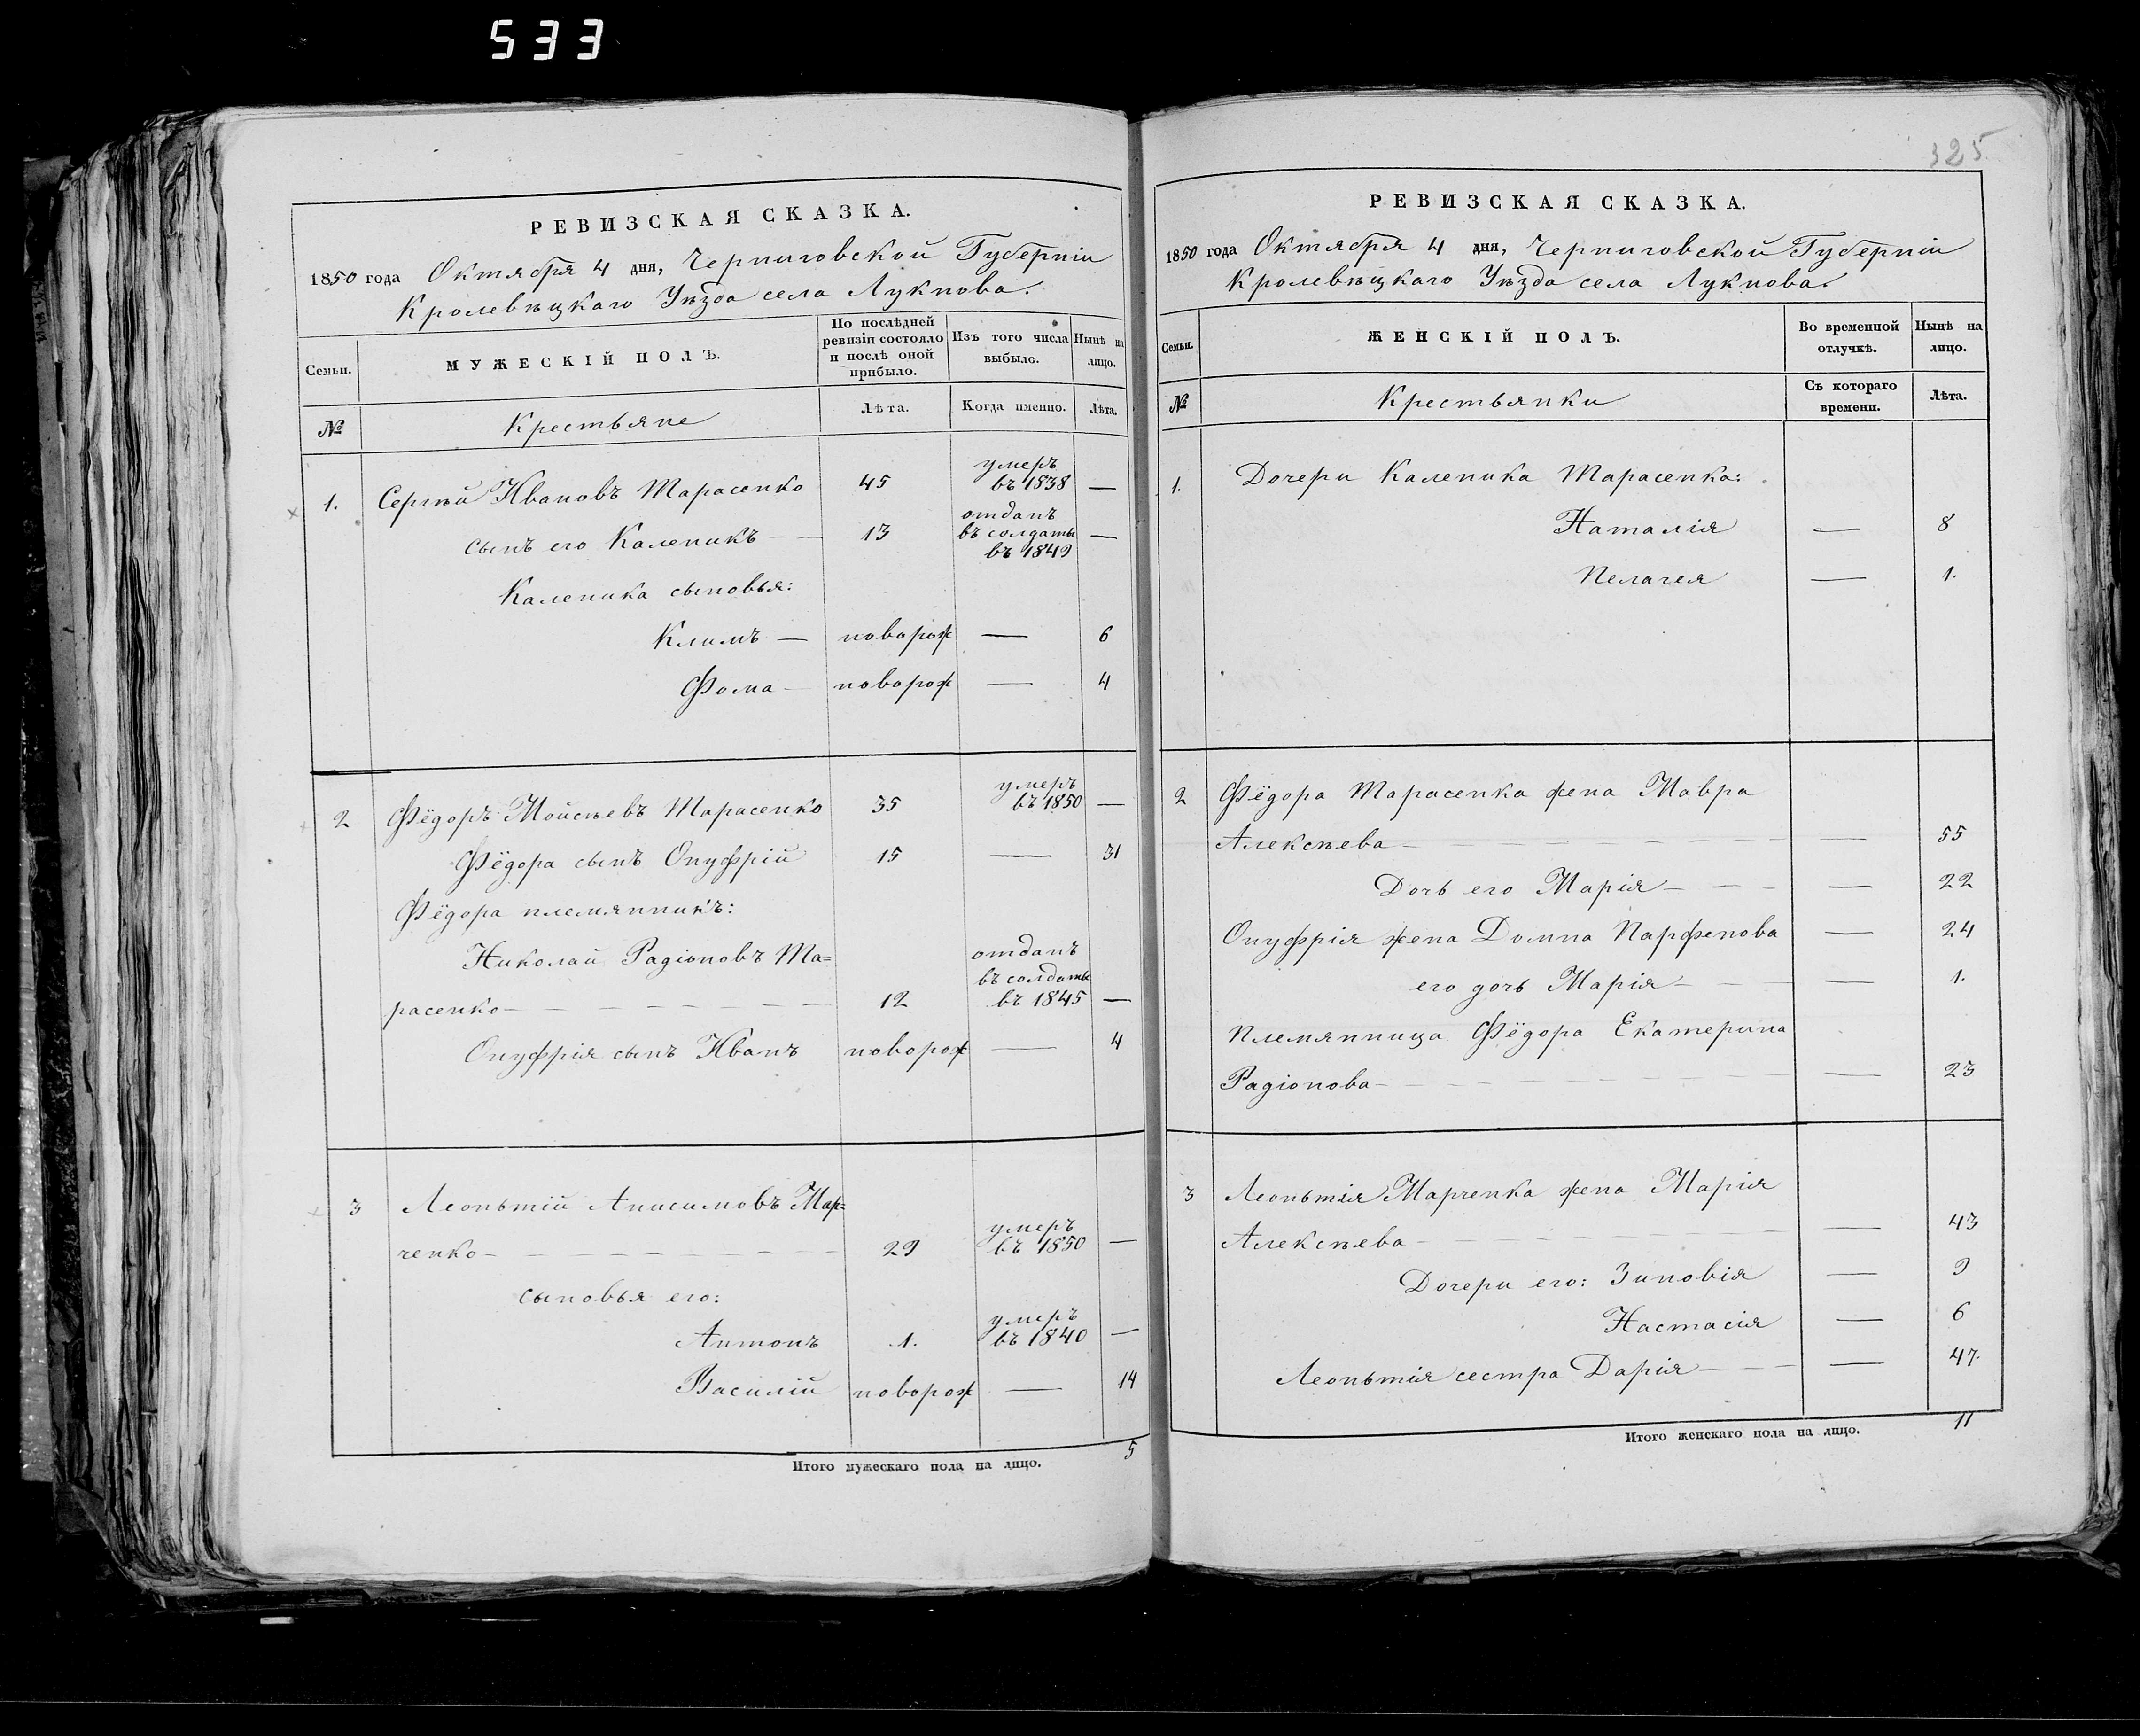 533
325
РЕВИЗСКАЯ СКАЗКА.
1850 года Октября 4 дня, Черниговской Губерніи
Кролевѣцкаго Уѣзда села Лукнова.
Семьи. МУЖЕСКІЙ ПОЛЪ. По послѣдней ревизіи состояло и послѣ оной прибыло. Изъ того числа выбыло. Нынѣ на лицо.
№ Крестьяне Лѣта. Когда именно. Лѣта.
1. Сергѣй Ивановъ Тарасенко 45 умеръ въ 1838 —
сынъ его Каленикъ — 13 отданъ въ солдаты въ 1849 —
Каленика сыновья:
Климъ — новорож — 6
Фома — новорож — 4
2 Фёдоръ Мойсѣевъ Тарасенко 35 умеръ въ 1850 —
Фёдора сынъ Онуфрій 15 — 31
Фёдора племянникъ:
Николай Радіоновъ Та=
расенко — 12 отданъ въ солдаты въ 1845 —
Онуфрія сынъ Иванъ новорож — 4
3 Леонътій Анисимовъ Мар=
ченко — 29 умеръ въ 1850 —
сыновья его:
Антонъ 1. умеръ въ 1840 —
Василій новорож — 14
Итого мужескаго пола на лицо. 5
РЕВИЗСКАЯ СКАЗКА.
1850 года Октября 4 дня, Черниговской Губерніи
Кролевѣцкаго Уѣзда села Лукнова.
Семьи. ЖЕНСКІЙ ПОЛЪ. Во временной отлучкѣ. Нынѣ на лицо.
№ Крестьянки Съ котораго времени. Лѣта.
1. Дочери Каленика Тарасенка:
Наталія — 8
Пелагея — 1.
2 Фёдора Тарасенка жена Мавра
Алексѣева — — 55
Дочь его Марія — — 22
Онуфрія жена Домна Парфенова — 24
его дочь Марія — — 1.
Племянница Фёдора Екатерина
Радіонова — — 23
3 Леонътія Марченка жена Марія
Алексѣева — — 43
Дочери его: Зиновія — 9
Настасія — 6
Леонътія сестра Дарія — — 47.
Итого женскаго пола на лицо. 11